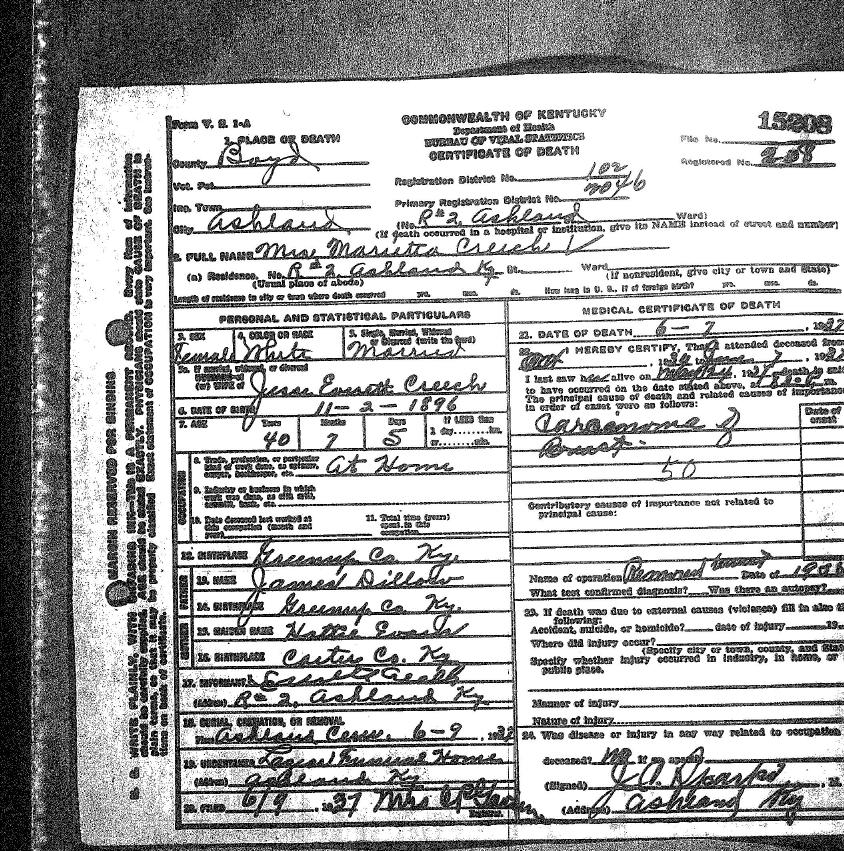 Form V. S. 1-A
COMMONWEALTH OF KENTUCKY
Department of Health
BUREAU OF VITAL STATISTICS
CERTIFICATE OF DEATH
15208
File No.
Registered No. 208
1. PLACE OF DEATH
County Boyd
Vot. Pct.
Inc. Town
City Ashland
Registration District No. 102
Primary Registration District No. 2046
(No. R# 2, Ashland Ward)
(If death occurred in a hospital or institution, give its NAME instead of street and number)
2. FULL NAME Mrs. Marietta Creech
(a) Residence. No. R# 2, Ashland Ky. St. Ward
(Usual place of abode) (If nonresident, give city or town and State)
Length of residence in city or town where death occurred yrs. mos. ds. How long in U. S., if of foreign birth? yrs. mos. ds.
PERSONAL AND STATISTICAL PARTICULARS
3. SEX Female
4. COLOR OR RACE White
5. Single, Married, Widowed or Divorced (write the word) Married
5a. If married, widowed, or divorced
HUSBAND of
(or) WIFE of Jesse Everett Creech
6. DATE OF BIRTH 11-2-1896
7. AGE Years 40 Months 7 Days 5 If LESS than 1 day hrs. or min.
8. Trade, profession, or particular kind of work done, as spinner, sawyer, bookkeeper, etc. At Home
9. Industry or business in which work was done, as silk mill, sawmill, bank, etc.
10. Date deceased last worked at this occupation (month and year)
11. Total time (years) spent in this occupation
12. BIRTHPLACE Greenup Co. Ky.
13. NAME James Dillow
14. BIRTHPLACE Greenup Co. Ky.
15. MAIDEN NAME Hattie Evans
16. BIRTHPLACE Carter Co. Ky
17. INFORMANT
(Address) R# 2, Ashland Ky
18. BURIAL, CREMATION, OR REMOVAL
Place Ashland Cem. 6-9, 1937
19. UNDERTAKER Funeral Home
(Address) Ashland Ky
20. FILED 6/9, 1937 Mrs
Registrar.
MEDICAL CERTIFICATE OF DEATH
21. DATE OF DEATH 6-7, 1937
22. I HEREBY CERTIFY, That I attended deceased from
June 7, 1937
I last saw her alive on death is said
to have occurred on the date stated above, at m.
The principal cause of death and related causes of importance
in order of onset were as follows:
Date of onset
Carcenoma of
Breast
50
Contributory causes of importance not related to
principal cause:
Name of operation Removed breast Date of 1936
What test confirmed diagnosis? Was there an autopsy?
23. If death was due to external causes (violence) fill in also the
following:
Accident, suicide, or homicide? date of injury 19
Where did injury occur?
(Specify city or town, county, and State
Specify whether injury occurred in industry, in home, or
public place.
Manner of injury
Nature of injury
24. Was disease or injury in any way related to occupation
deceased? no If so specify
(Signed) J. P. Sparks, M.
(Address) Ashland Ky
MARGIN RESERVED FOR BINDING